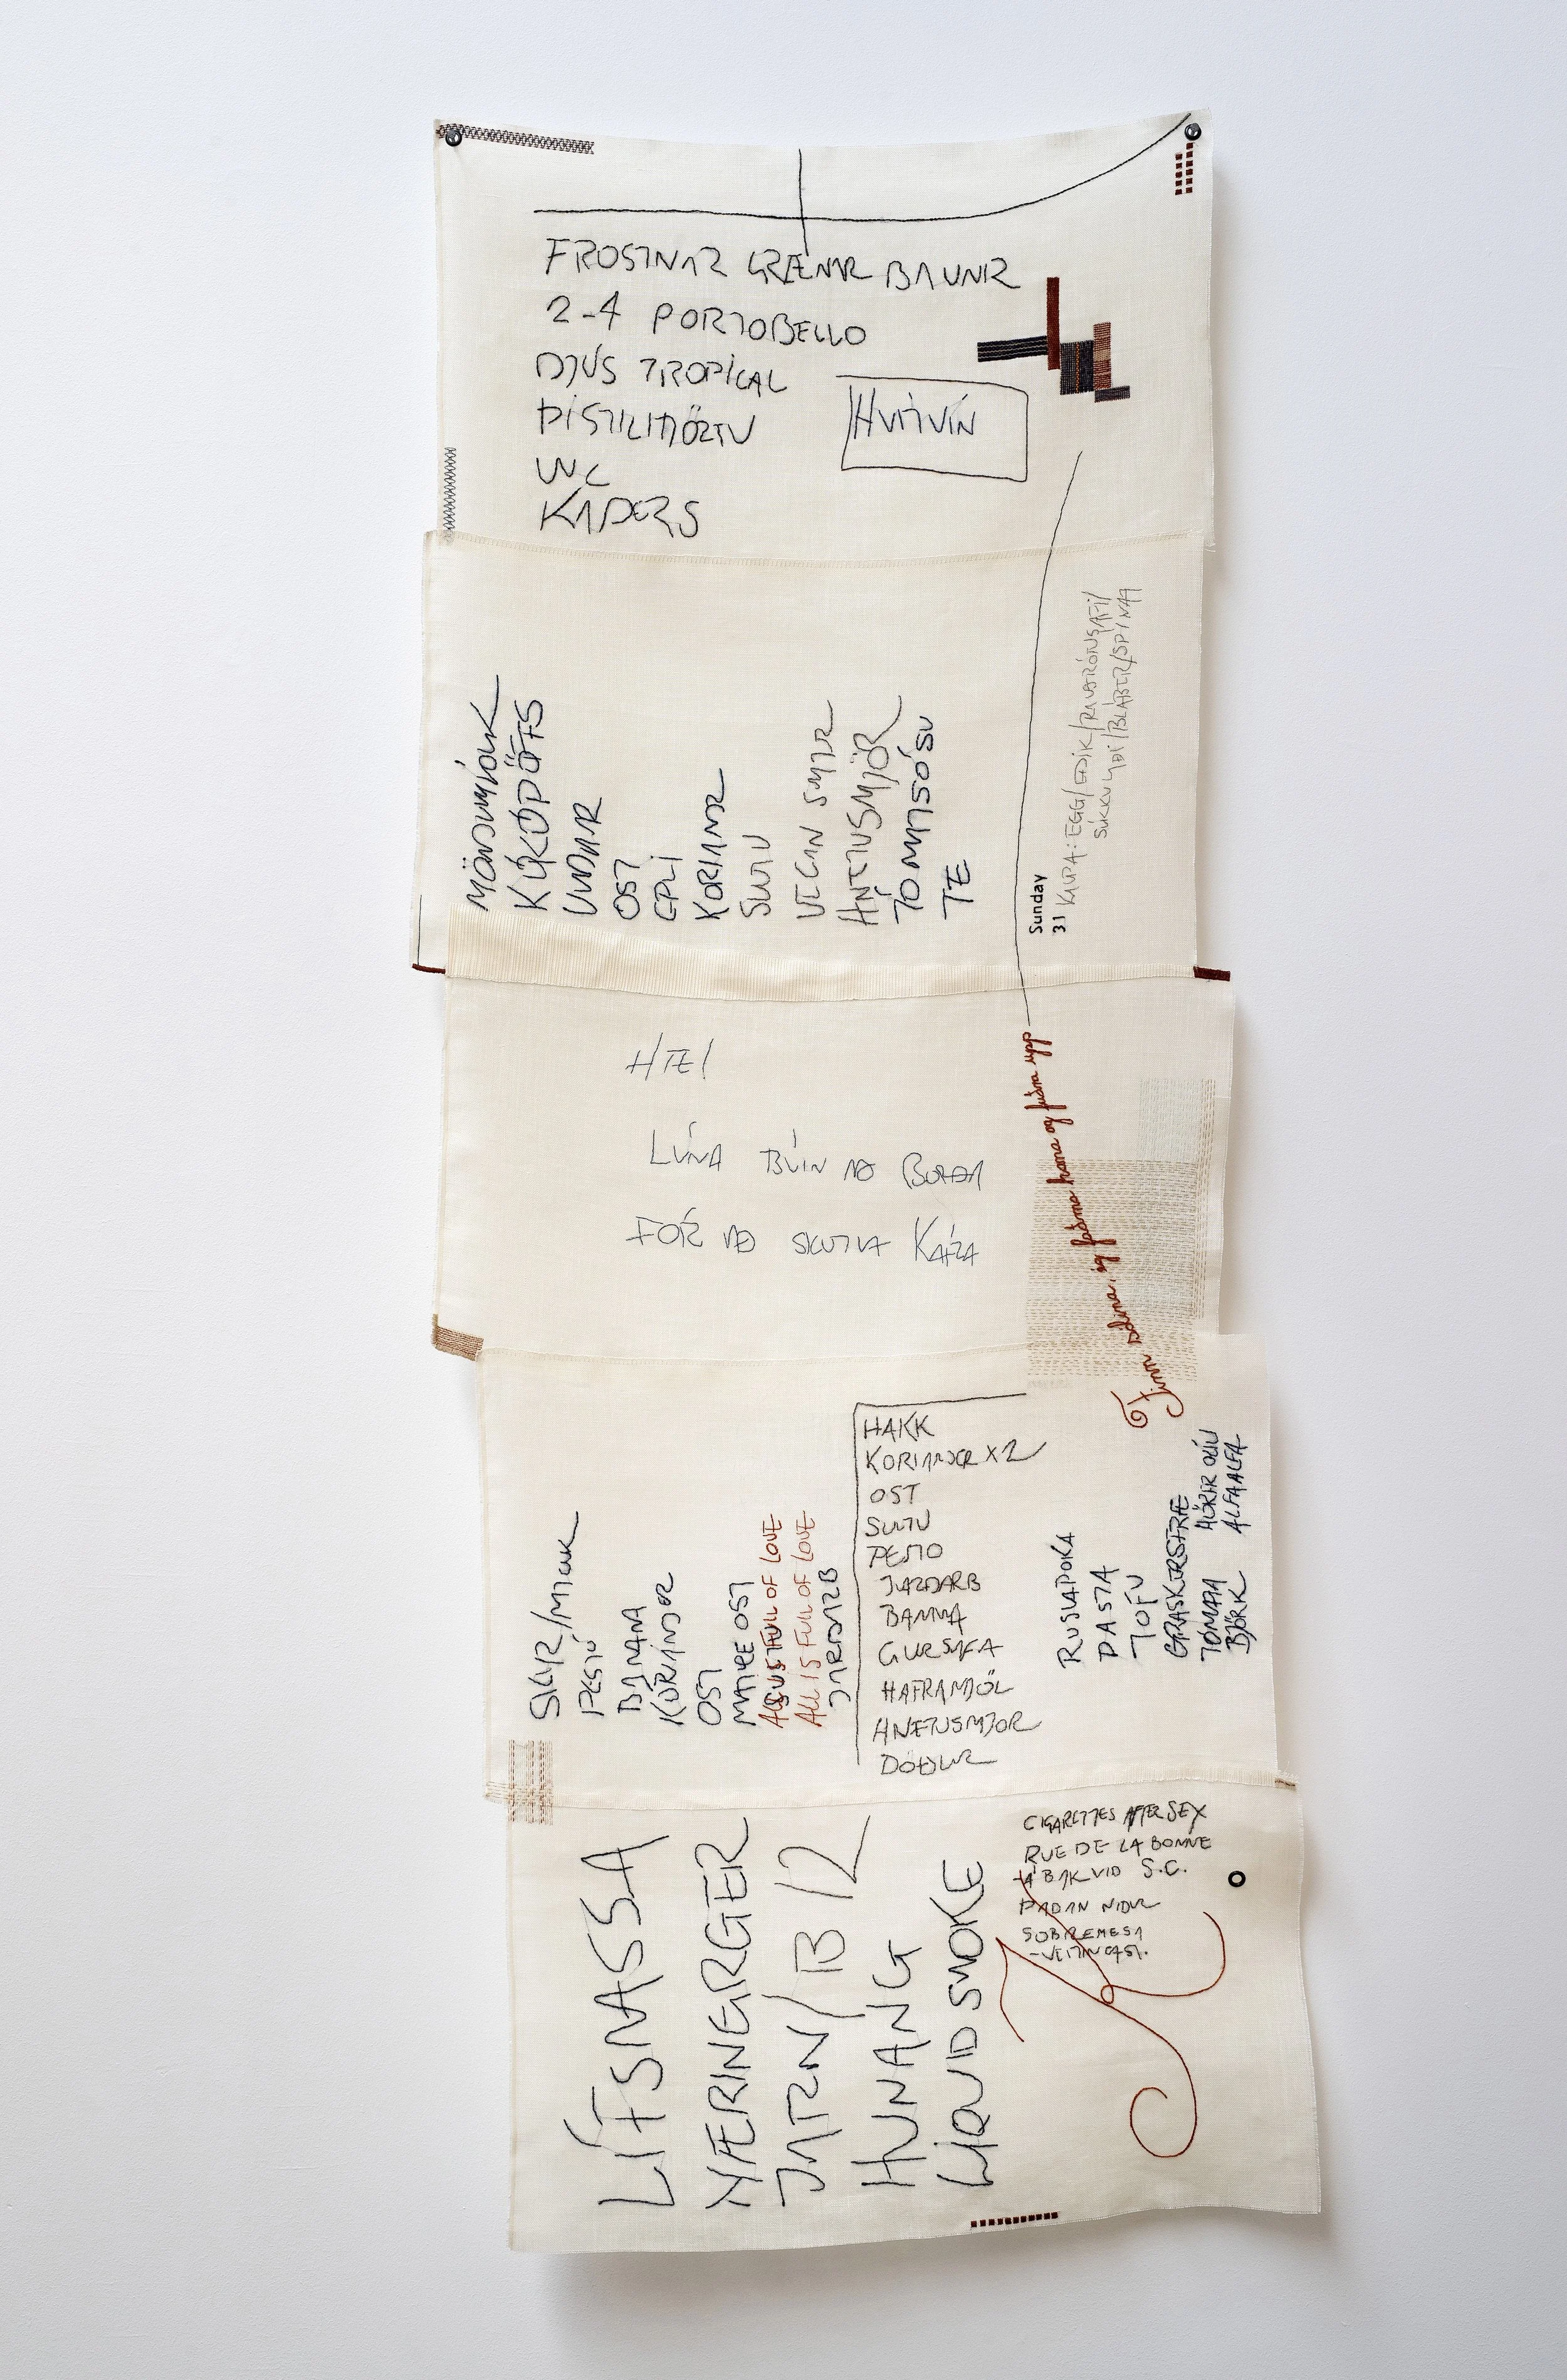 FROSTNAR GRÆNAR BAUNIR
2-4 PORTOBELLO
DJÚS TROPICAL
ÞISTILHJÖRTU
WC
KADERS
HVÍTVÍN
MÖNDUMJÓLK
UNDAR
OST
EPLI
KORIANDER
SULTU
VEGAN SMJÖR
HNETUSMJÖR
TÓMATSÓSU
TE
Sunday
31
KAUPA: EGG/EDIK/PARMÓNSAFI/
SÚKKULAÐI/BLÁBER/SPÍNAT
HÆ!
LÚNA BÚIN AÐ BORÐA
FÓR AÐ SKUTLA KÁRA
Finn sólina, ég faðma hana og fuðra upp
SKYR/MJÓLK
PESTÓ
BANANA
KORIANDER
OST
MATRE OST
ALL IS FULL OF LOVE
ALL IS FULL OF LOVE
JARÐARB
HAKK
KORIANDER X2
OST
SULTU
PESTO
JARÐARB
BANANA
GURKA
HAFRAMJÖL
HNETUSMJÖR
DÖÐLUR
RUSLAPOKA
PASTA
TOFU
GRASKERSFRÆ
TÓMATA HÖRFR OLÍU
BJÖRK ALFAALFA
LÍFSMASSA
NÆRINGARGER
JARN/B12
HUNANG
LIQUID SMOKE
CIGARETTES AFTER SEX
RUE DE LA BONNE
Á BAKVIÐ S.C.
ÞAÐAN NIÐUR
SOBREMESA
-VEITINGAST.